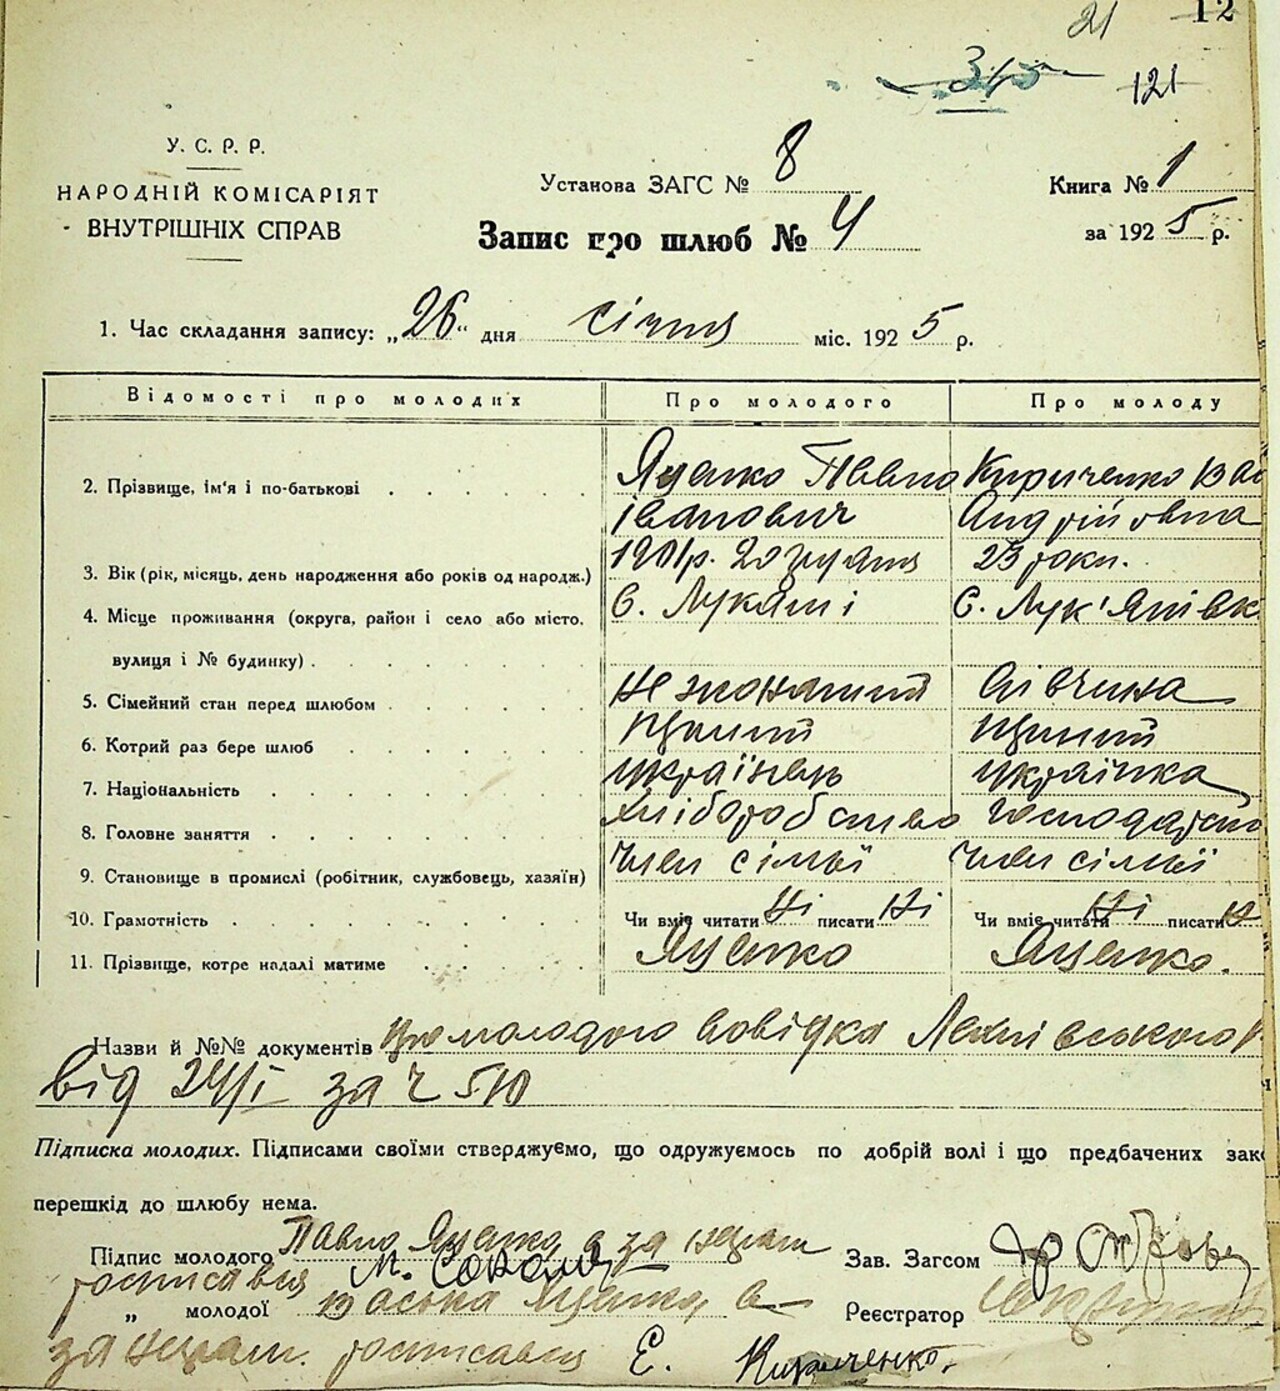 21 12
315 121
У. С. Р. Р.
НАРОДНІЙ КОМІСАРІЯТ
ВНУТРІШНІХ СПРАВ
Установа ЗАГС № 8
Книга № 1
Запис про шлюб № 4
за 1925 р.
1. Час складання запису: „26“ дня січня міс. 1925 р.
Відомості про молодих Про молодого Про молоду
2. Прізвище, ім'я і по-батькові Яценко Павло Кириченко Ва
Іванович Андрійовна
3. Вік (рік, місяць, день народження або років од народж.) 1901р. 20 грудня 23 роки.
4. Місце проживання (округа, район і село або місто, с. Лукаші с. Лук'янівк
вулиця і № будинку)
5. Сімейний стан перед шлюбом не жонатий дівчина
6. Котрий раз бере шлюб перший перший
7. Національність українець українка
8. Головне заняття хліборобство господарство
9. Становище в промислі (робітник, службовець, хазяїн) член сімьї член сімьї
10. Грамотність Чи вміє читати Ні писати Ні Чи вміє читати Ні писати Н
11. Прізвище, котре надалі матиме Яценко Яценко.
Назви й №№ документів про молодого довідка
від 24/I за ч 510
Підписка молодих. Підписами своїми стверджуємо, що одружуємось по добрій волі і що предбачених зако
перешкід до шлюбу нема.
Підпис молодого Павло Яценко а за неграм Зав. Загсом
росписався М.
„ молодої Васька Яценко, а Реєстратор
за неграм. росписався Є. Кириченко.